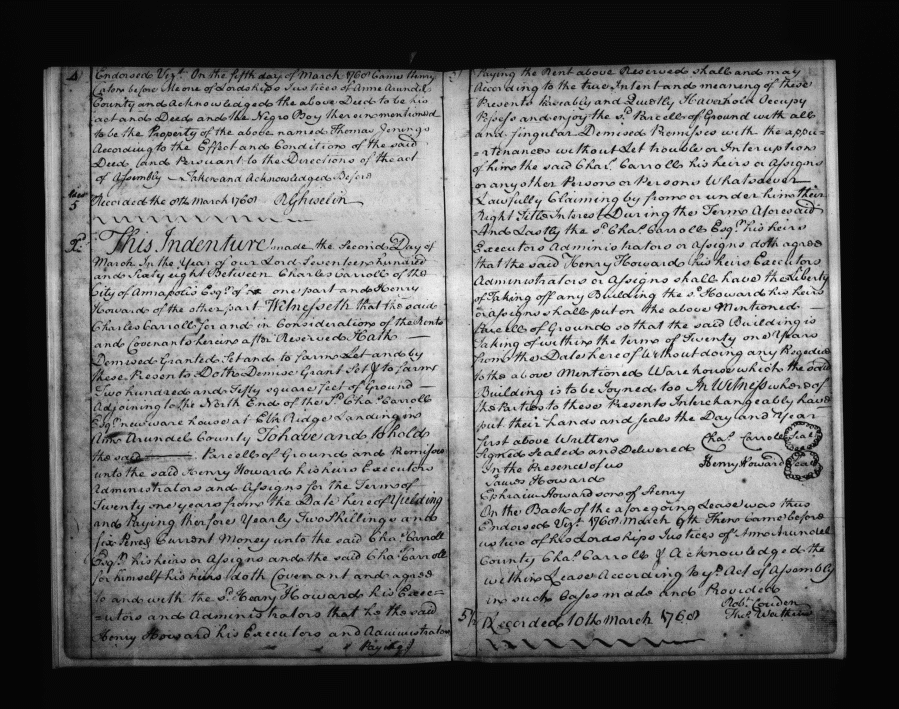 Endorsed Vizt. On the fifth day of March 1768 Came Henry
Caton before Me one of Lordships Justices of Anne Arundel
County and Acknowledged the above Deed to be his
act and Deed and the Negro Boy therein mentioned
to be the Property of the above named Thomas Jenings
According to the Effect and Conditions of the said
Deed and Persuant to the Directions of the act
of Assembly Taken and Acknowledged Before
5 Recorded the 8th March 1768 R Ghiselin
This Indenture made the Second Day of
March In the Year of our Lord Seventeen hundred
and Sixty eight Between Charles Carroll of the
City of Annapolis Esqr. of one part and Henry
Howard of the other part Witnesseth that the said
Charles Carroll for and in Consideration of the Rents
and Covenants herein after Reserved Hath
Demised Granted Set and to farm Let and by
these Presents Doth Demise Grant Set & to farm
Two hundred and Fifty square feet of Ground
Adjoining to the North End of the Sd. Chas. Carroll
Esqrs. new ware house at Elk Ridge Landing in
Ann Arundel County To have and to hold
the said Parcell of Ground and Premisses
unto the said Henry Howard his heirs Executors
Administrators and Assigns for the Term of
Twenty one years from the Date hereof Yielding
and Paying therefore Yearly Two Shillings and
six Pence Current Money unto the said Chas. Carroll
Esqr. his heirs or Assigns and the said Chas. Carroll
for himself his heirs doth Covenant and agree
to and with the sd. Henry Howard his Exec=
=utors and Administrators that he the said
Henry Howard his Executors and Administrators
Paying
Paying the Rent above Reserved shall and may
According to the true Intent and meaning of these
Presents Peacably and Quietly Have hold Occupy
Posess and enjoy the sd. Parcell of Ground with all
and singular Demised Premisses with the appu=
=rtenances without Let trouble or Interuption
of him the said Chas. Carroll his heirs or Assigns
or any other Person or Persons Whatsoever
Lawfully Claiming by from or under him their
Right Title Interest During the Term Aforesaid
And Lastly the sd. Chas. Carroll Esqr. his heirs
Executors Administrators or Assigns doth agree
that the said Henry Howard his heirs Executors
Administrators or Assigns shall have the Liberty
of Taking off any Building the sd. Howard his heirs
or Assigns shall put on the above Mentioned
Parcell of Ground so that the said Building is
Taking of within the term of Twenty one Years
from the Date hereof Without doing any
to the above Mentioned Ware house which the said
Building is to be Joyned too In Witness whereof
the Parties to these Presents Interchangeably have
put their hands and seals the Day and Year
first above Written
Chas. Carroll Seal
Signed Sealed and Delivered
In the Presence of us
Henry Howard Seal
James Howard
Ephraim Howard son of Henry
On the Back of the aforegoing Lease was thus
Endorsed Vizt. 1768 March 9th Then Came before
us two of his Lordships Justices of Ann Arundel
County Chas. Carroll & Acknowledged the
within Lease According to ye. Act of Assembly
in such Cases made and Provided
Robt. Couden
Thos. Watkins
Recorded 10th March 1768